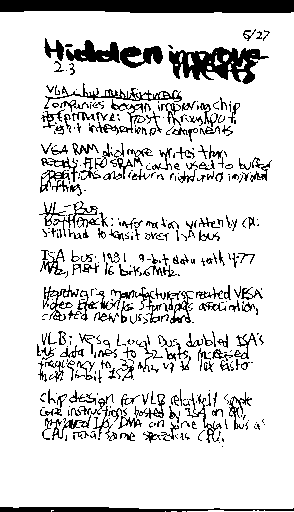 5/27
Hidden improve-
ments
2.3
VGA chip manufacturers
Companies began improving chip
performance: host throughput
tight integration of components
VGA RAM did more writes than
reads. FIFO SRAM cache used to buffer
operations and return right away improved
writing.
VL-Bus
Bottleneck: information written by CPU
still had to transit over ISA bus
ISA bus: 1981 8-bit data path 4.77
MHz, 1984 16 bits 8 MHz.
Hardware manufacturers created VESA
Video Electronics Standards Association,
created new bus standard.
VLB: Vesa Local Bus, doubled ISA's
bus data lines to 32 bits, increased
frequency to 33 MHz, up to 10x faster
than 16-bit ISA
chip design for VLB relatively simple
core instructions hosted by ISA on CPU,
I/O/DMA on same local bus as
CPU, same speed as CPU.